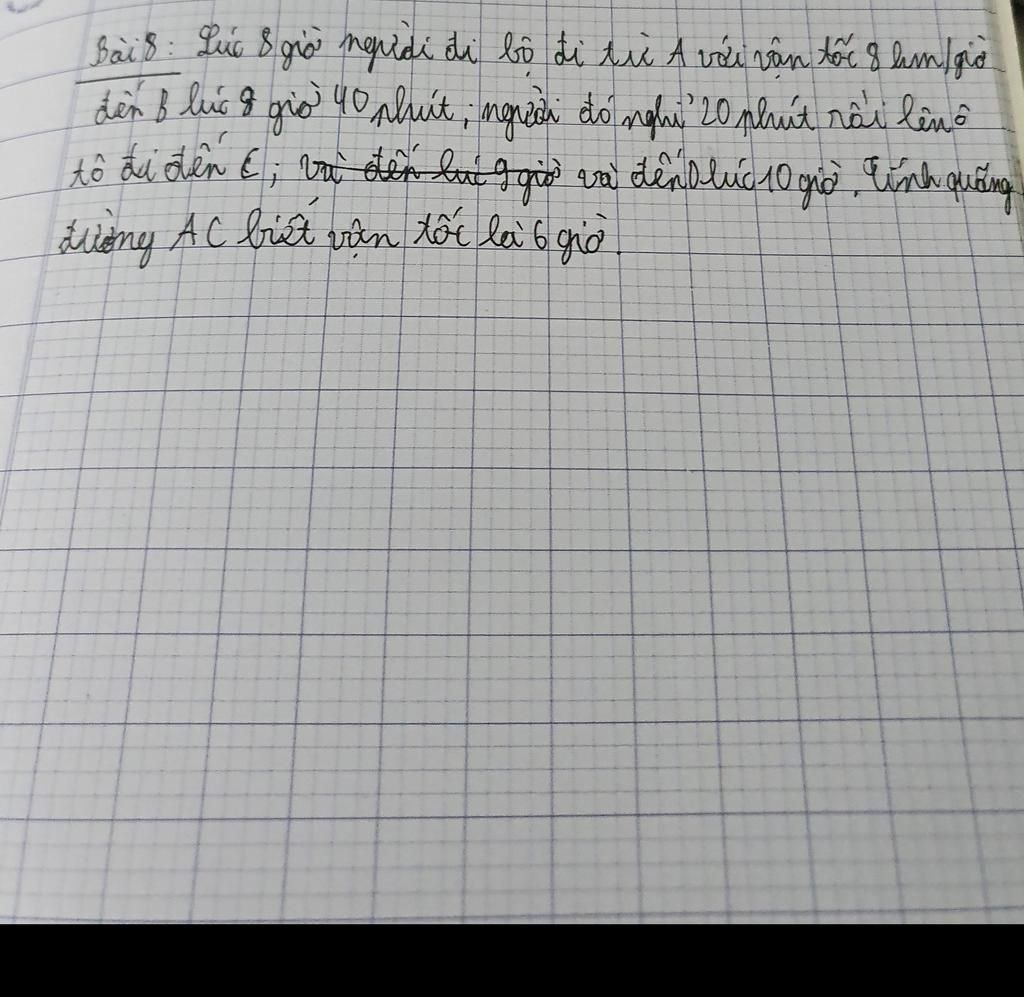 Bài 8: Lúc 8 giờ người đi bộ đi từ A với vận tốc 8 km/giờ
đến B lúc 8 giờ 40 phút, người đó nghỉ 20 phút rồi lên ô
tô đi đến C, và đến lúc 9 giờ và đến D lúc 10 giờ. Tính quãng
đường AC biết vận tốc là 6 giờ.